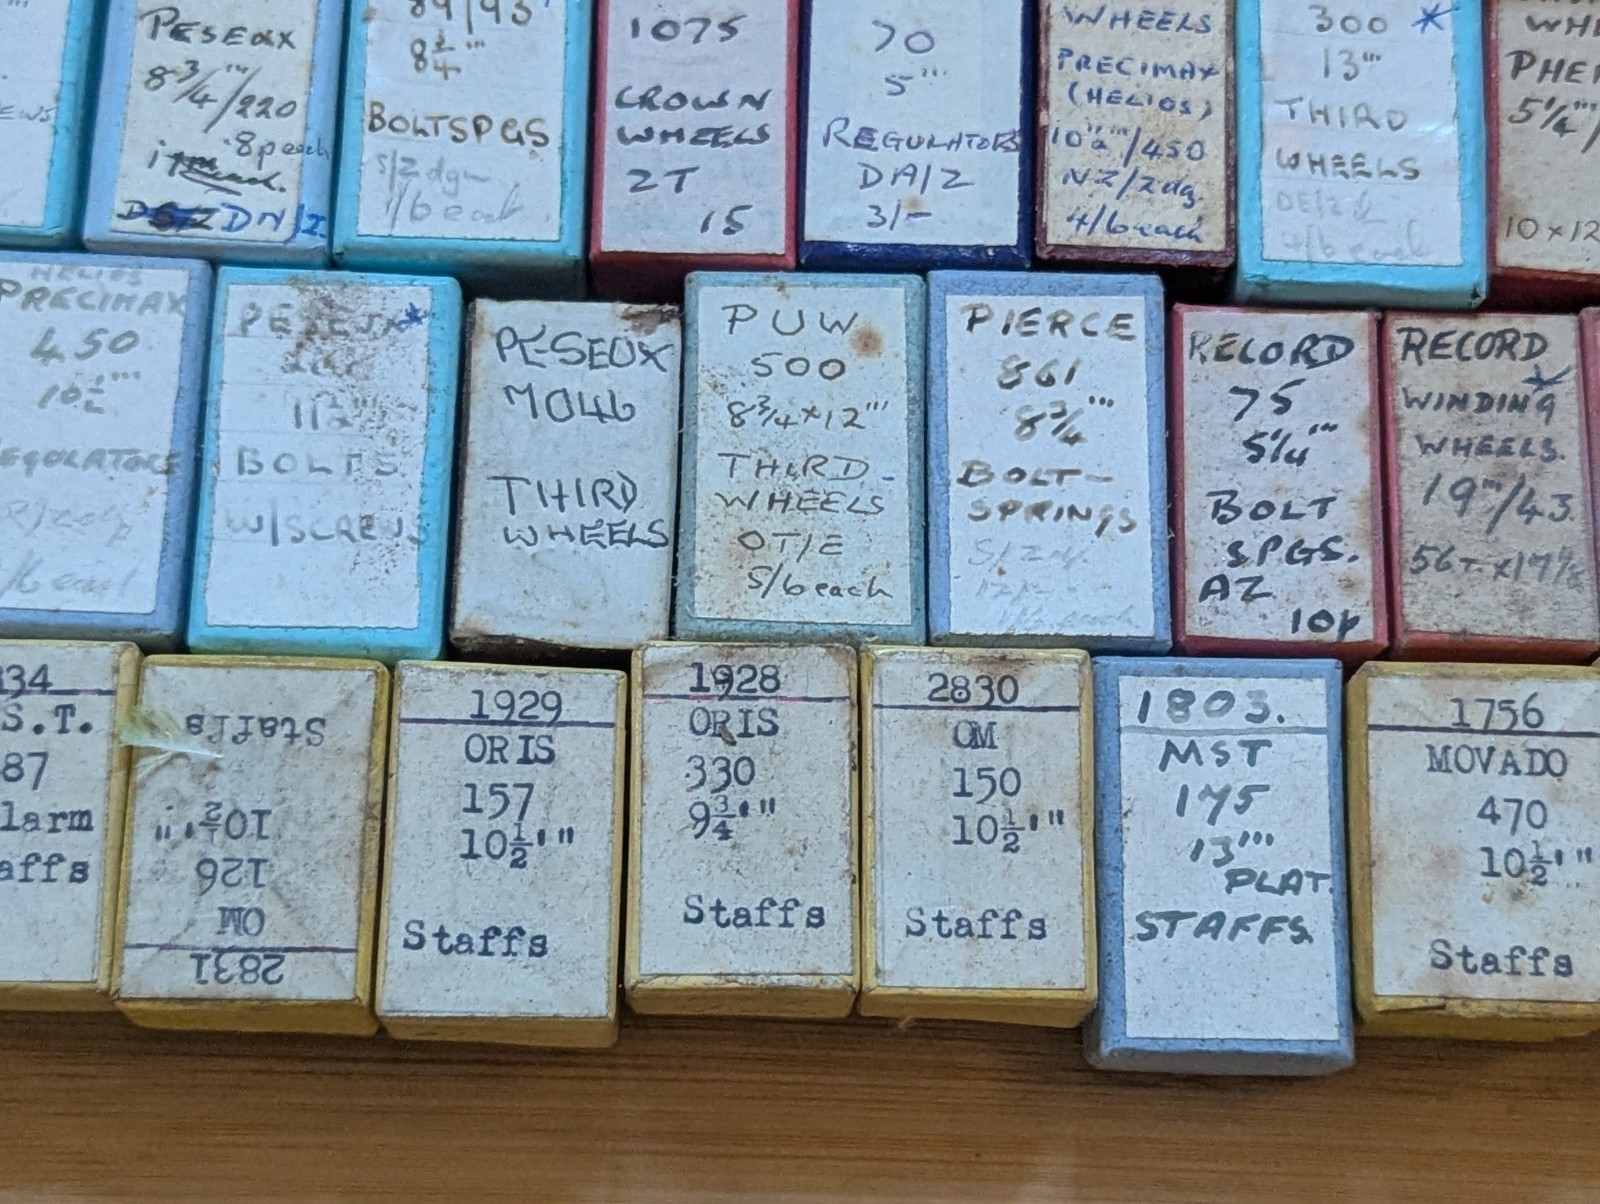 PESEUX
8¾'''/220
8p each
DN/Z
89/93
8¾'''
BOLTSPGS
S/Z dgn
1/6 each
1075
CROWN
WHEELS
2T
15
70
5'''
REGULATORS
DA/Z
3/-
WHEELS
PRECIMAX
(HELIOS)
10½'''/450
NZ/2dg.
4/6 each
300 *
13'''
THIRD
WHEELS
DE/2d
4/6 each
WHE
PHE
5¼'''/
10×12
HELIOS
PRECIMAX
450
10½'''
EGULATORS
/6 each
PESEUX*
11½'''
BOLTS
W/SCREWS
PESEUX
7046
THIRD
WHEELS
PUW
500
8¾×12'''
THIRD
WHEELS
OT/E
5/6 each
PIERCE
861
8¾'''
BOLT-
SPRINGS
RECORD
75
5¼'''
BOLT
SPGS.
AZ
10p
RECORD
WINDING
WHEELS.
19'''/43.
56T. x17⅛
834
S.T.
87
larm
affs
2831
OM
126
10½'"
Staffs
1929
ORIS
157
10½'"
Staffs
1928
ORIS
330
9¾'"
Staffs
2830
OM
150
10½'"
Staffs
1803.
MST
175
13'''
PLAT.
STAFFS.
1756
MOVADO
470
10½'"
Staffs